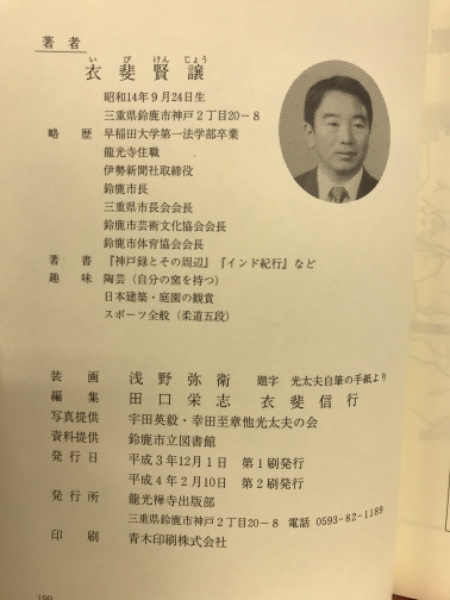 著者
い び けん じょう
衣斐賢譲
昭和14年9月24日生
三重県鈴鹿市神戸2丁目20-8
略歴 早稲田大学第一法学部卒業
龍光寺住職
伊勢新聞社取締役
鈴鹿市長
三重県市長会会長
鈴鹿市芸術文化協会会長
鈴鹿市体育協会会長
著書 『神戸録とその周辺』『インド紀行』など
趣味 陶芸(自分の窯を持つ)
日本建築・庭園の観賞
スポーツ全般(柔道五段)
装画 浅野弥衛 題字 光太夫自筆の手紙より
編集 田口栄志 衣斐信行
写真提供 宇田英毅・幸田至章他光太夫の会
資料提供 鈴鹿市立図書館
発行日 平成3年12月1日 第1刷発行
平成4年2月10日 第2刷発行
発行所 龍光禅寺出版部
三重県鈴鹿市神戸2丁目20-8 電話 0593-82-1189
印刷 青木印刷株式会社
199